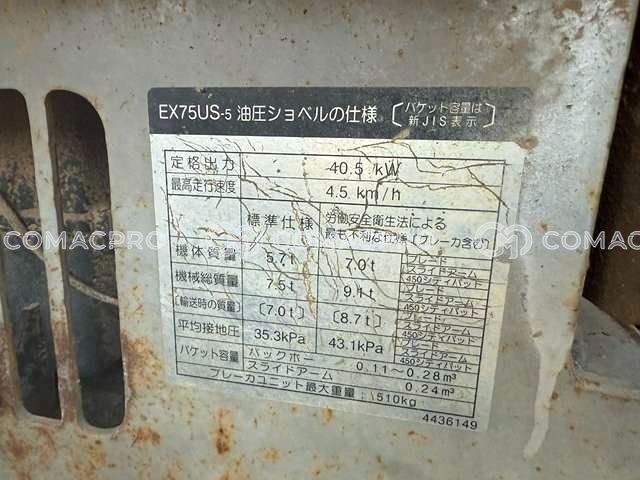 EX75US-5 油圧ショベルの仕様 〔バケット容量は
新JIS表示〕
定格出力 40.5 kW
最高走行速度 4.5 km/h
標準仕様 労働安全衛生法による
最も不利な仕様(ブレーカ含む)
機体質量 5.7t 7.0t ブレード
スライドアーム
450シティパット
機械総質量 7.5t 9.1t ブレード
スライドアーム
450シティパット
〔輸送時の質量〕 〔7.0t〕 〔8.7t〕 ブレード
スライドアーム
450シティパット
平均接地圧 35.3kPa 43.1kPa ブレード
スライドアーム
450シティパット
バケット容量 バックホー 0.11~0.28m³
スライドアーム 0.24m³
ブレーカユニット最大重量:510kg
4436149
COMACPRO
COMACPRO
COMACPRO